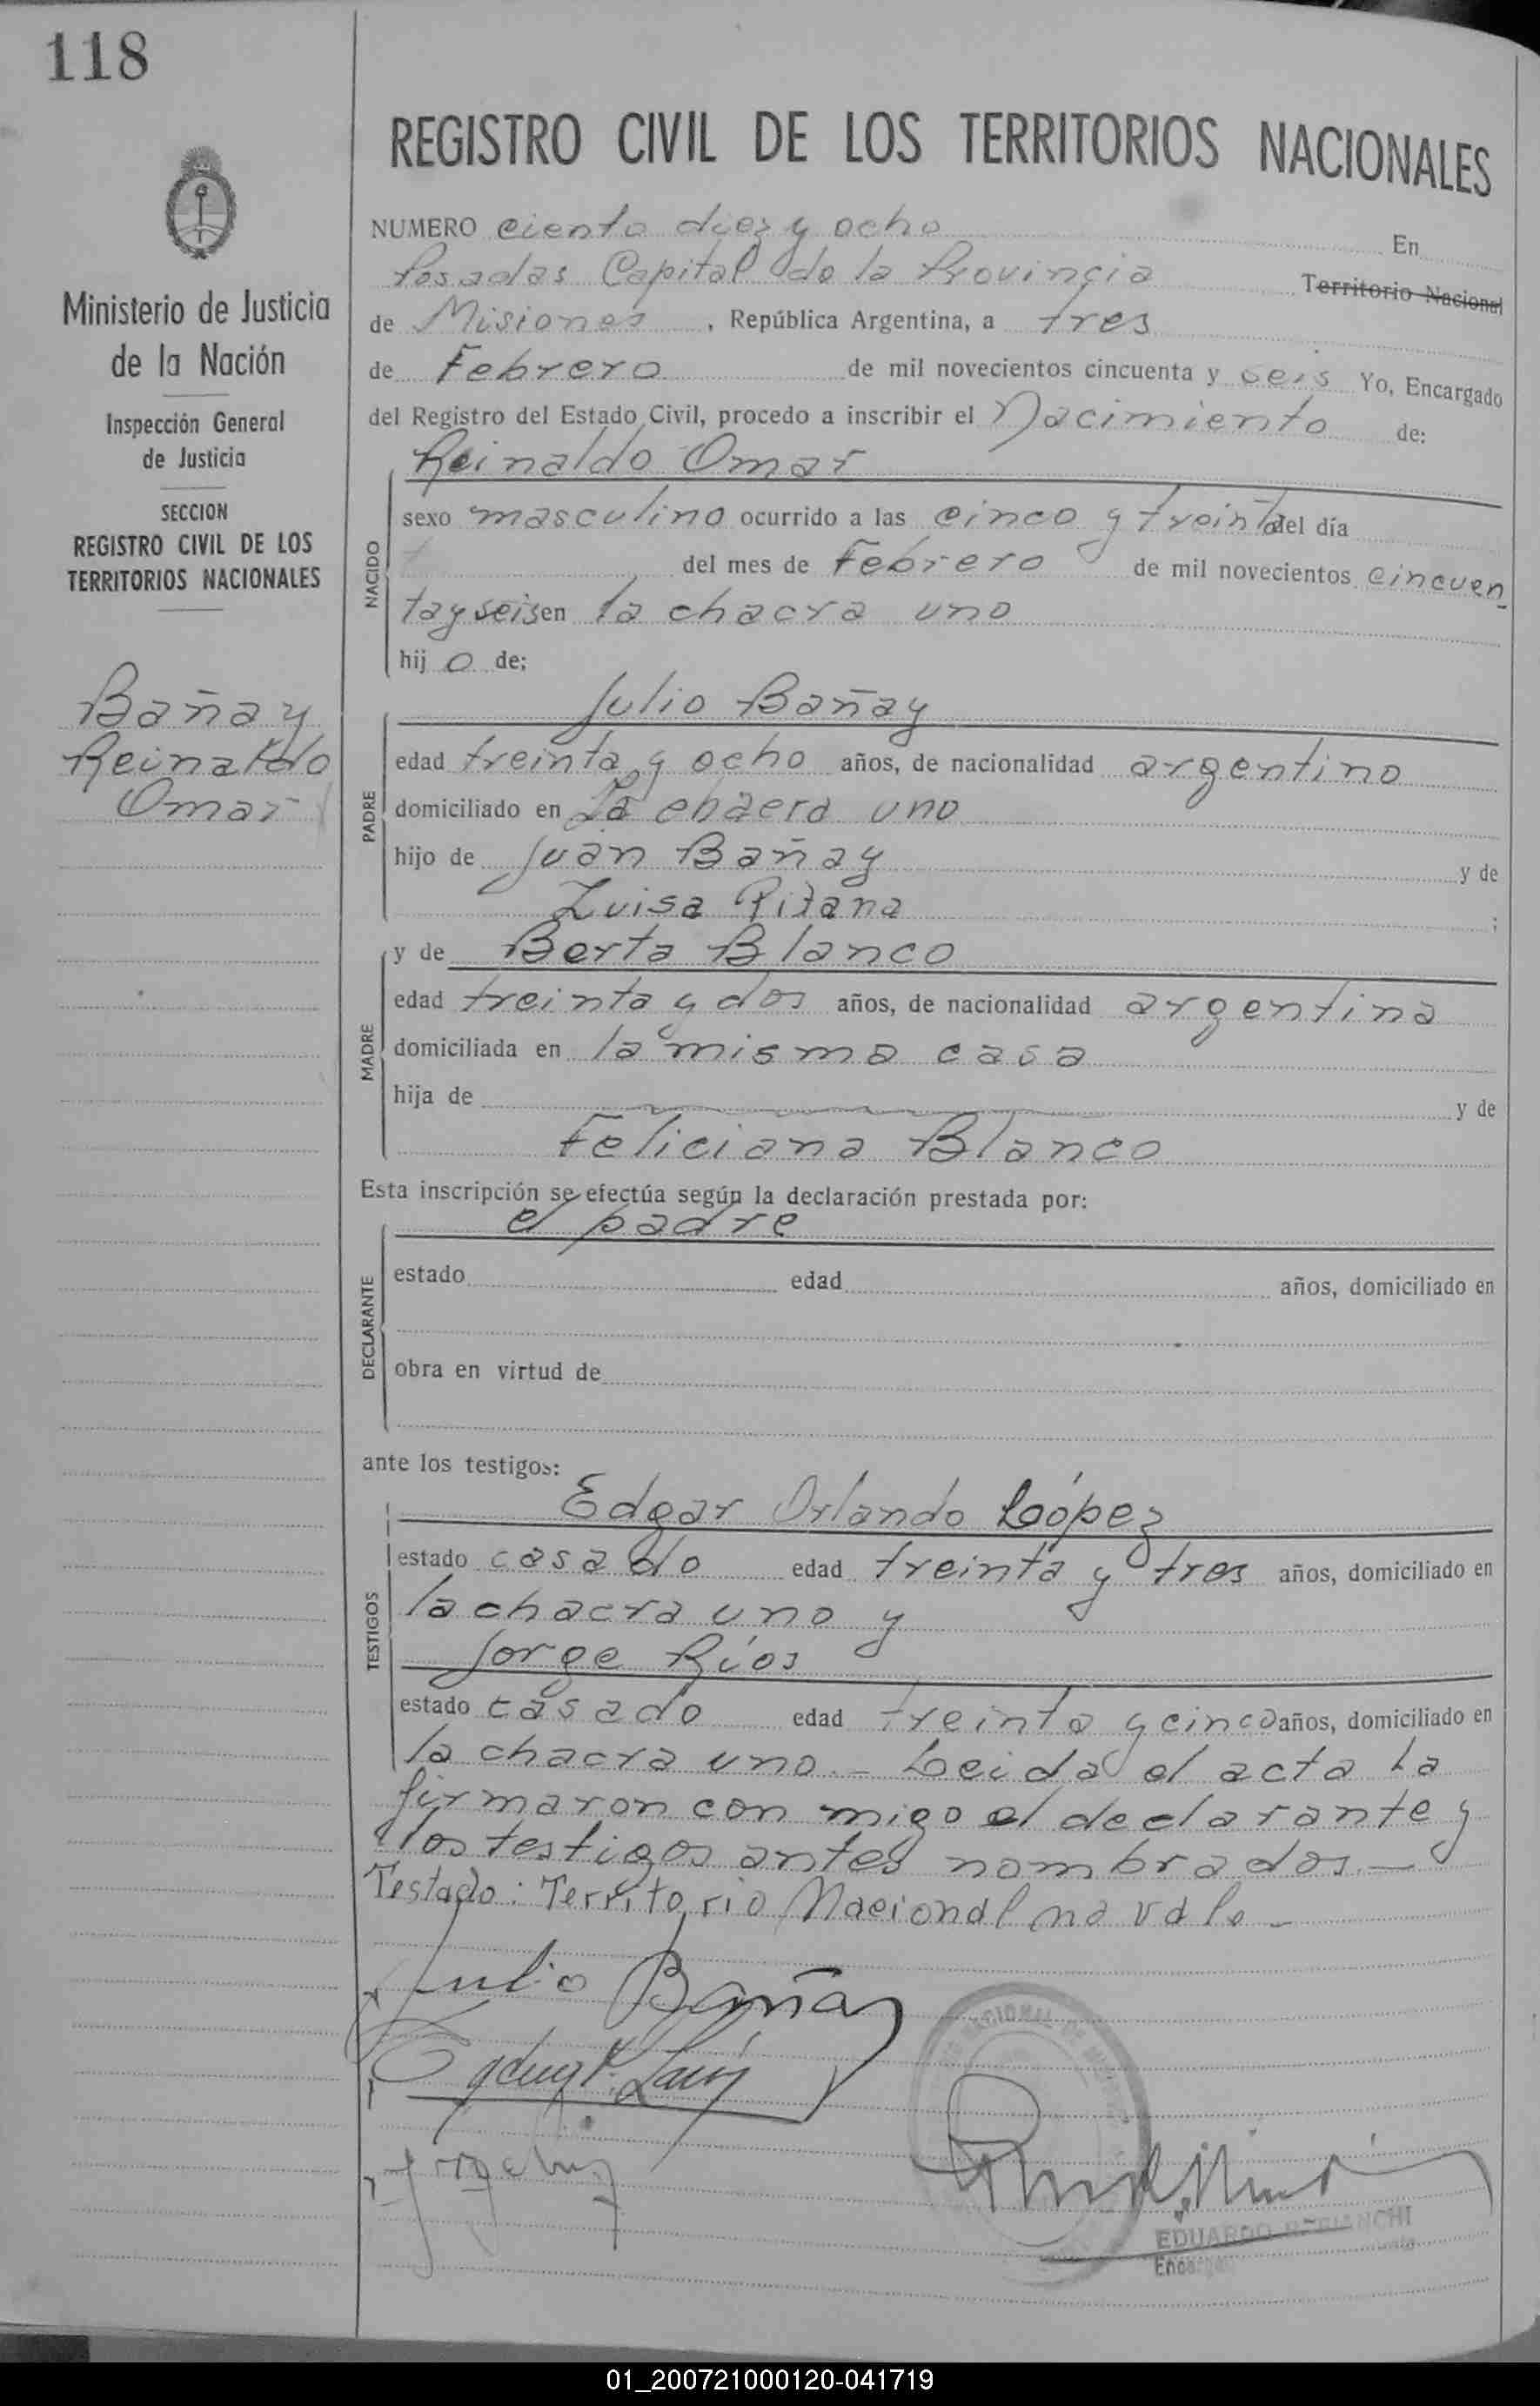 118
Ministerio de Justicia
de la Nación
Inspección General
de Justicia
SECCION
REGISTRO CIVIL DE LOS
TERRITORIOS NACIONALES
Bañay
Reinaldo
Omar
REGISTRO CIVIL DE LOS TERRITORIOS NACIONALES
NUMERO ciento diez y ocho En
Posadas Capital de la Provincia Territorio Nacional
de Misiones, República Argentina, a tres
de Febrero de mil novecientos cincuenta y seis Yo, Encargado
del Registro del Estado Civil, procedo a inscribir el Nacimiento de:
Reinaldo Omar
NACIDO
sexo masculino ocurrido a las cinco y treinta del día
del mes de Febrero de mil novecientos cincuen
ta y seis en la chacra uno
hijo de:
PADRE
Julio Bañay
edad treinta y ocho años, de nacionalidad argentino
domiciliado en La chacra uno
hijo de Juan Bañay y de
Luisa Pitana ;
MADRE
y de Berta Blanco
edad treinta y dos años, de nacionalidad argentina
domiciliada en la misma casa
hija de y de
Feliciana Blanco
Esta inscripción se efectúa según la declaración prestada por:
DECLARANTE
el padre
estado edad años, domiciliado en
obra en virtud de
ante los testigos:
TESTIGOS
Edgar Orlando López
estado casado edad treinta y tres años, domiciliado en
la chacra uno y
Jorge Ríos
estado casado edad treinta y cinco años, domiciliado en
la chacra uno.- Leida el acta la
firmaron con migo el declarante y
los testigos antes nombrados.-
Testado: Territorio Nacional no vale-
Julio Bañay
EDUARDO
01_200721000120-041719